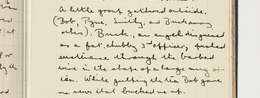 a little group gathered outside.
(Bob, Pyne, Smithy, and Buchanan,
others). Bruck, an angel disguised
as a fat chubby 3rd officer, pushed
sustenance through the barbed
wire in the shape of a large mug of
tea. While getting the tea Bob gave
me news that bucked me up.